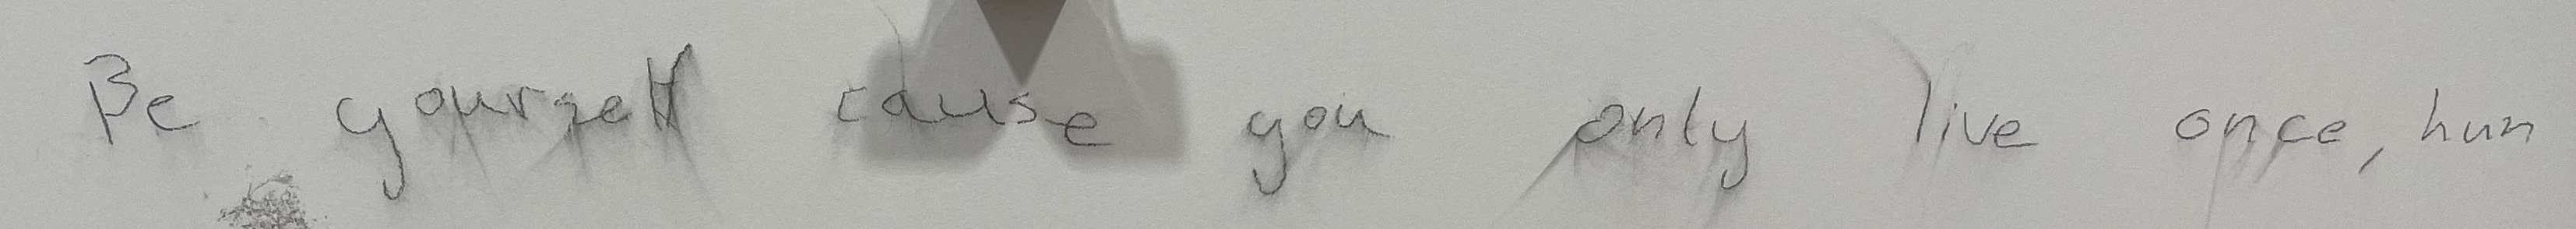 Be yourself cause you only live once, hun